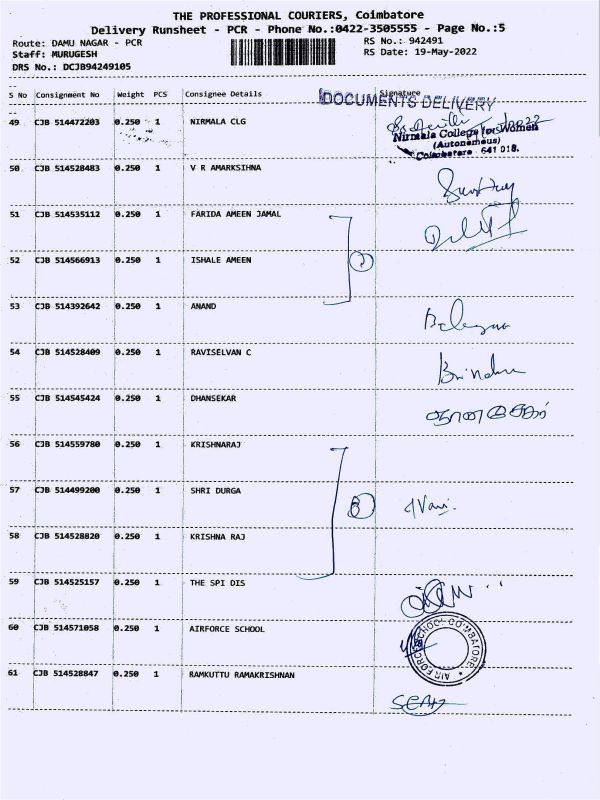 THE PROFESSIONAL COURIERS, Coimbatore
Delivery Runsheet - PCR - Phone No.:0422-3505555 - Page No.:5
Route: DAMU NAGAR - PCR
RS No.: 942491
Staff: MURUGESH
RS Date: 19-May-2022
DRS No.: DCJB94249105
S No Consignment No Weight PCS Consignee Details Signature
DOCUMENTS DELIVERY
49 CJB 514472203 0.250 1 NIRMALA CLG
Nirmala College for Women
(Autonomous)
Coimbatore 641 018.
50 CJB 514528483 0.250 1 V R AMARKSIHNA
51 CJB 514535112 0.250 1 FARIDA AMEEN JAMAL
52 CJB 514566913 0.250 1 ISHALE AMEEN
2
53 CJB 514392642 0.250 1 ANAND
54 CJB 514528409 0.250 1 RAVISELVAN C
55 CJB 514545424 0.250 1 DHANSEKAR
56 CJB 514559780 0.250 1 KRISHNARAJ
57 CJB 514499200 0.250 1 SHRI DURGA
3
58 CJB 514528820 0.250 1 KRISHNA RAJ
59 CJB 514525157 0.250 1 THE SPI DIS
60 CJB 514571058 0.250 1 AIRFORCE SCHOOL
AIR FORCE SCHOOL COIMBATORE
61 CJB 514528847 0.250 1 RAMKUTTU RAMAKRISHNAN